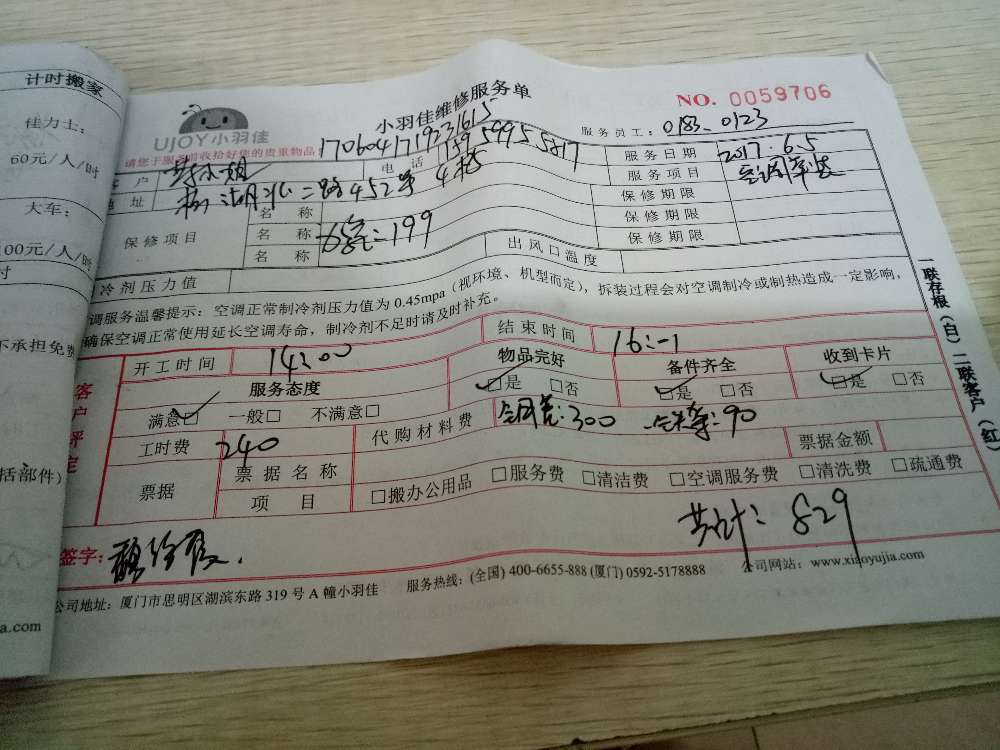 计时搬家
佳力士：
60元/人/时
大车：
100元/人/时
不承担免费
括部件)
ia.com
UJOY小羽佳
小羽佳维修服务单
NO. 0059706
请您于服务前收拾好您的贵重物品
1706041719231615
服务员工：0183、0123
客 户
电 话 159 5995 5817
服务日期 2017.6.5
地 址 湖北二路452号 4楼
服务项目 空调
保修项目
名 称
保修期限
名 称 :199
保修期限
名 称
保修期限
冷剂压力值
出风口温度
调服务温馨提示：空调正常制冷剂压力值为 0.45mpa（视环境、机型而定），拆装过程会对空调制冷或制热造成一定影响，
确保空调正常使用延长空调寿命，制冷剂不足时请及时补充。
一联存根（白）二联客户（红）
客户评定
开工时间 14:00
结束时间
服务态度
物品完好
备件齐全
收到卡片
满意☑ 一般□ 不满意□
☑是 □否
☑是 □否
☑是 □否
工时费 240
代购材料费 :300 :90
票据金额
票据
票据名称
项 目
□搬办公用品 □服务费 □清洁费 □空调服务费 □清洗费 □疏通费
共计：829
签字：
公司地址：厦门市思明区湖滨东路 319 号 A 幢小羽佳 服务热线：(全国) 400-6655-888 (厦门) 0592-5178888 公司网站：www.xiaoyujia.com